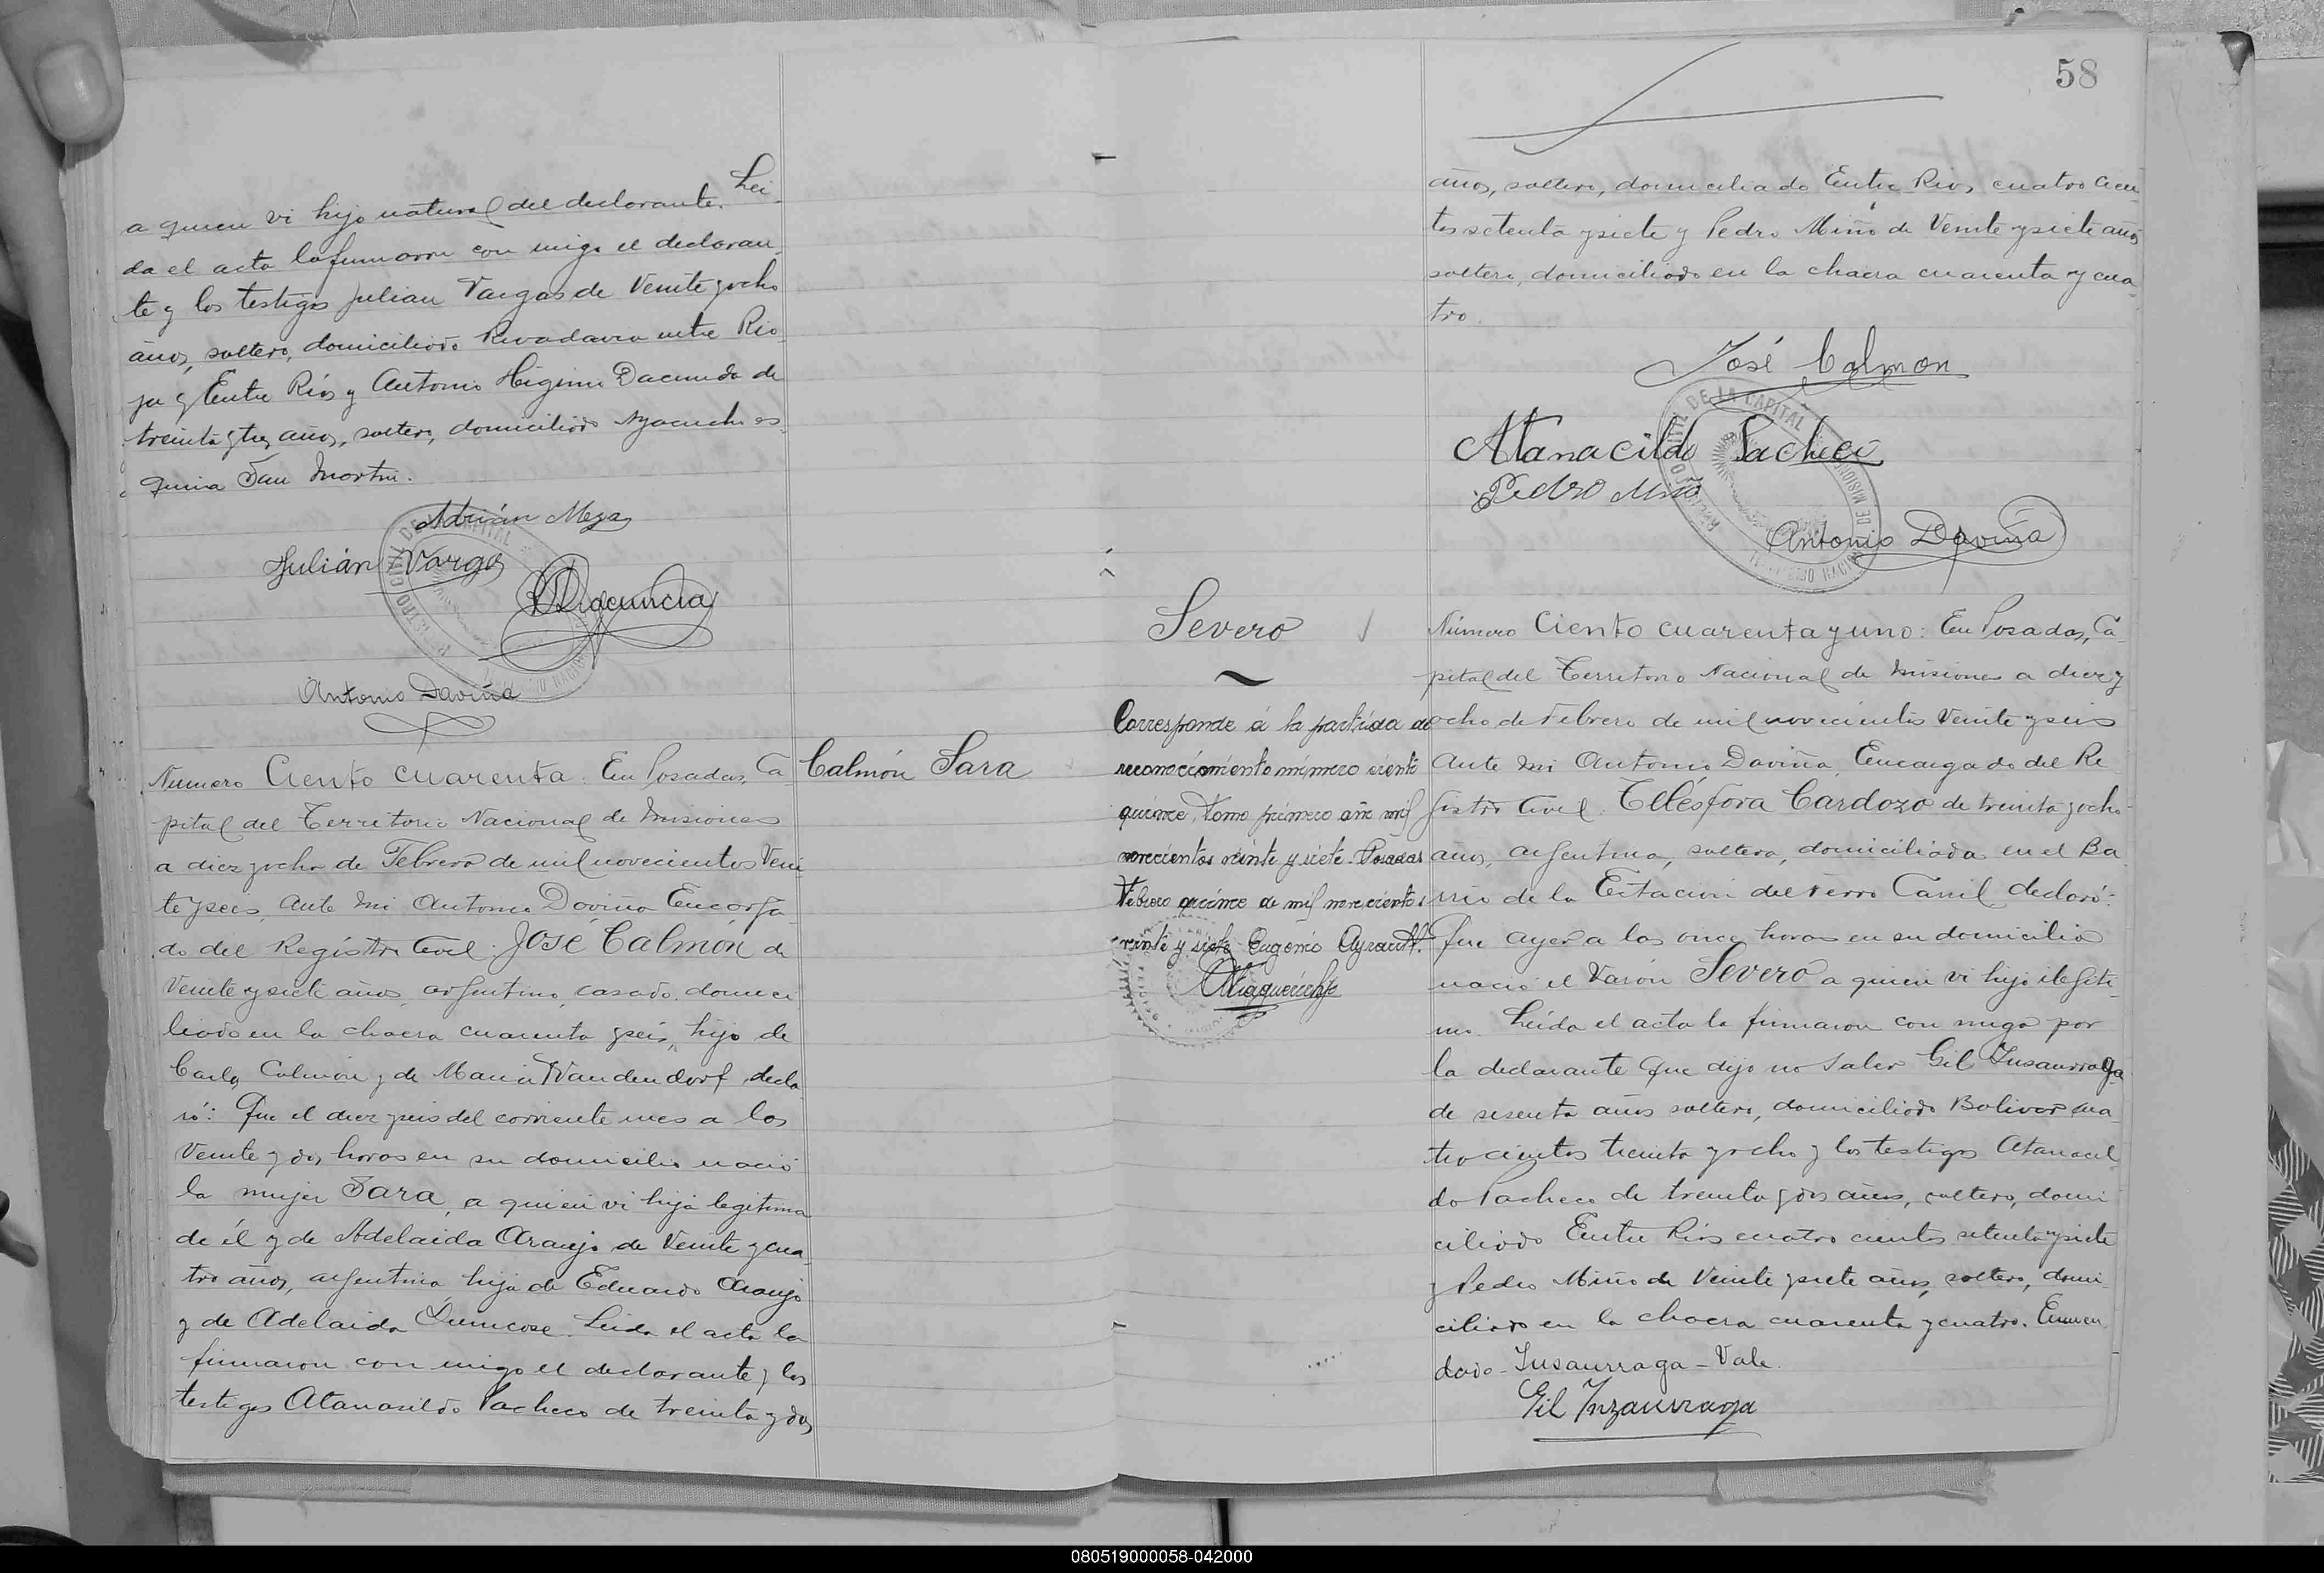 a quien vi hijo natural del declarante. Lei-
da el acta la firmaron con migo el declaran-
te y los testigos Julian Vargas de Veinte y ocho
años, soltero, domiciliado Rivadavia entre Rio-
ja y Entre Ríos y Antonio Higinio Dacunda de
treinta y tres años, soltero, domiciliado Ayacucho es-
quina San Martin.
Adrián Meza
Julián Vargas
Antonio Daviña
Calmón Sara
Número Ciento cuarenta: En Posadas, Ca-
pital del Territorio Nacional de Misiones
a diez y ocho de Febrero de mil novecientos Vein
te y seis, Ante Mi Antonio Daviña Encarga-
do del Registro Civil. José Calmón de
Veinte y siete años, argentino, casado, domici
liado en la chacra cuarenta y seis, hijo de
Carlos Calmón y de María Vandendorf, decla
ró: Que el diez y seis del corriente mes a las
Veinte y dos horas en su domicilio nació
la mujer Sara, a quien vi hija legitima
de él y de Adelaida Araujo de Veinte y cua-
tro años, argentina hija de Eduardo Araujo
y de Adelaida. Leida el acta la
firmaron con migo el declarante y los
testigos Atanasildo Pacheco de treinta y dos
58
años, soltero, domiciliado Entre Rios cuatro cien
tos setenta y siete y Pedro Miño de Veinte y siete años
soltero, domiciliado en la chacra cuarenta y cua
tro.
José Calmon
Atanacildo Pacheco
Pedro Miño
Antonio Daviña
REGISTRO CIVIL DE LA CAPITAL
Severo
Corresponde á la partida de
reconocimiento número ciento
quince, Tomo primero año mil
novecientos veinte y siete. Posadas
Febrero quince de mil novecientos
veinte y siete. Eugenio Ayrault.
Número Ciento cuarenta y uno: En Posadas, Ca-
pital del Territorio Nacional de Misiones a diez y
ocho de Febrero de mil novecientos Veinte y seis
Ante Mi Antonio Daviña, Encargado del Re
gistro Civil. Telésfora Cardozo de treinta y ocho
años, argentina, soltera, domiciliada en el Ba
rrio de la Estación del Ferro Carril declaró:
Que ayer a las once horas en su domicilio
nació el Varón Severo a quien vi hijo ilegiti-
mo. Leída el acta la firmaron con migo por
la declarante que dijo no saber Gil Insaurraga
de sesenta años soltero, domiciliado Bolivar cua-
trocientos treinta y ocho y los testigos Atanacil
do Pacheco de treinta y dos años, soltero, domi
ciliado Entre Rios cuatro cientos setenta y siete
y Pedro Miño de Veinte y siete años, soltero, domi-
ciliado en la chacra cuarenta y cuatro. Enmen
dado-Insaurraga-Vale.
Gil Inzaurraga
080519000058-042000